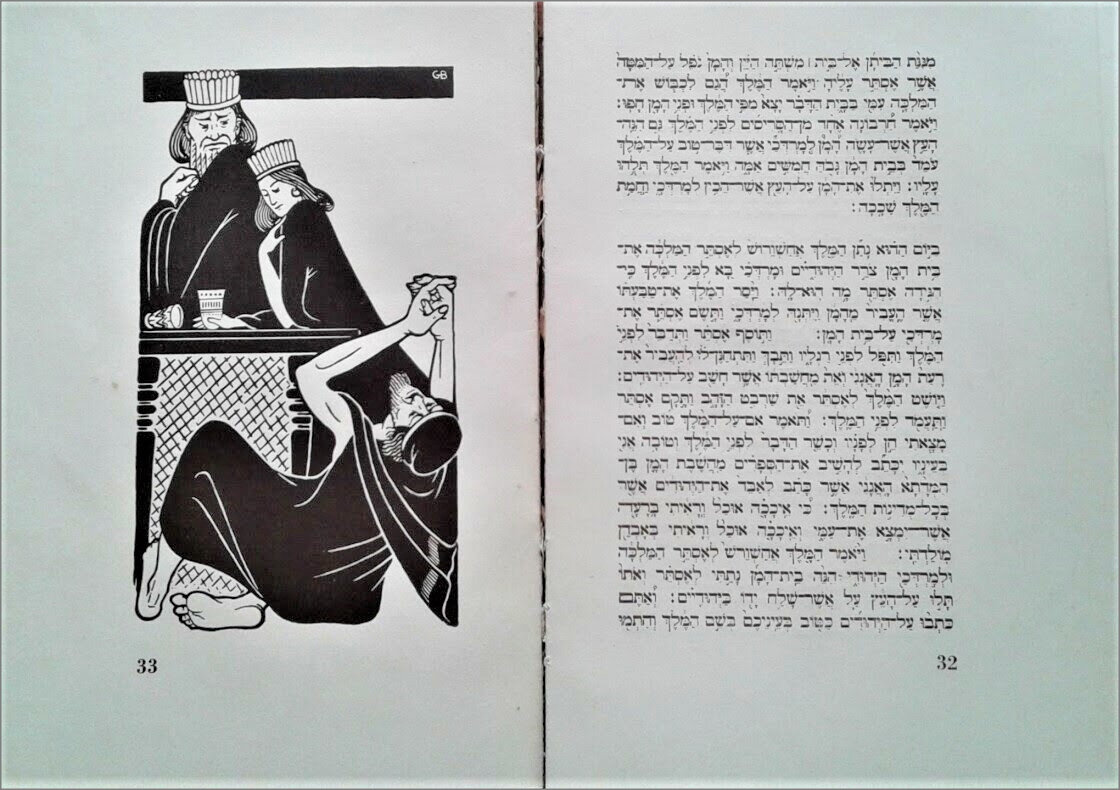 מִגִּנַּת הַבִּיתָן אֶל־בֵּית ׀ מִשְׁתֵּה הַיַּיִן וְהָמָן נֹפֵל עַל־הַמִּטָּה
אֲשֶׁר אֶסְתֵּר עָלֶיהָ וַיֹּאמֶר הַמֶּלֶךְ הֲגַם לִכְבּוֹשׁ אֶת־
הַמַּלְכָּה עִמִּי בַּבָּיִת הַדָּבָר יָצָא מִפִּי הַמֶּלֶךְ וּפְנֵי הָמָן חָפוּ:
וַיֹּאמֶר חַרְבוֹנָה אֶחָד מִן־הַסָּרִיסִים לִפְנֵי הַמֶּלֶךְ גַּם הִנֵּה־
הָעֵץ אֲשֶׁר־עָשָׂה הָמָן לְמָרְדֳּכַי אֲשֶׁר דִּבֶּר־טוֹב עַל־הַמֶּלֶךְ
עֹמֵד בְּבֵית הָמָן גָּבֹהַּ חֲמִשִּׁים אַמָּה וַיֹּאמֶר הַמֶּלֶךְ תְּלֻהוּ
עָלָיו: וַיִּתְלוּ אֶת־הָמָן עַל־הָעֵץ אֲשֶׁר־הֵכִין לְמָרְדֳּכָי וַחֲמַת
הַמֶּלֶךְ שָׁכָכָה:
בַּיּוֹם הַהוּא נָתַן הַמֶּלֶךְ אֲחַשְׁוֵרוֹשׁ לְאֶסְתֵּר הַמַּלְכָּה אֶת־
בֵּית הָמָן צֹרֵר הַיְּהוּדִיִּים וּמָרְדֳּכַי בָּא לִפְנֵי הַמֶּלֶךְ כִּי־
הִגִּידָה אֶסְתֵּר מַה הוּא־לָהּ: וַיָּסַר הַמֶּלֶךְ אֶת־טַבַּעְתּוֹ
אֲשֶׁר הֶעֱבִיר מֵהָמָן וַיִּתְּנָהּ לְמָרְדֳּכָי וַתָּשֶׂם אֶסְתֵּר אֶת־
מָרְדֳּכַי עַל־בֵּית הָמָן: וַתּוֹסֶף אֶסְתֵּר וַתְּדַבֵּר לִפְנֵי
הַמֶּלֶךְ וַתִּפֹּל לִפְנֵי רַגְלָיו וַתֵּבְךְּ וַתִּתְחַנֶּן־לוֹ לְהַעֲבִיר אֶת־
רָעַת הָמָן הָאֲגָגִי וְאֵת מַחֲשַׁבְתּוֹ אֲשֶׁר חָשַׁב עַל־הַיְּהוּדִיִּים:
וַיּוֹשֶׁט הַמֶּלֶךְ לְאֶסְתֵּר אֵת שַׁרְבִט הַזָּהָב וַתָּקָם אֶסְתֵּר
וַתַּעֲמֹד לִפְנֵי הַמֶּלֶךְ: וַתֹּאמֶר אִם־עַל־הַמֶּלֶךְ טוֹב וְאִם־
מָצָאתִי חֵן לְפָנָיו וְכָשֵׁר הַדָּבָר לִפְנֵי הַמֶּלֶךְ וְטוֹבָה אֲנִי
בְּעֵינָיו יִכָּתֵב לְהָשִׁיב אֶת־הַסְּפָרִים מַחֲשֶׁבֶת הָמָן בֶּן־
הַמְּדָתָא הָאֲגָגִי אֲשֶׁר כָּתַב לְאַבֵּד אֶת־הַיְּהוּדִים אֲשֶׁר
בְּכָל־מְדִינוֹת הַמֶּלֶךְ: כִּי אֵיכָכָה אוּכַל וְרָאִיתִי בָּרָעָה
אֲשֶׁר־יִמְצָא אֶת־עַמִּי וְאֵיכָכָה אוּכַל וְרָאִיתִי בְּאָבְדַן
מוֹלַדְתִּי: וַיֹּאמֶר הַמֶּלֶךְ אֲחַשְׁוֵרֹשׁ לְאֶסְתֵּר הַמַּלְכָּה
וּלְמָרְדֳּכַי הַיְּהוּדִי הִנֵּה בֵית־הָמָן נָתַתִּי לְאֶסְתֵּר וְאֹתוֹ
תָּלוּ עַל־הָעֵץ עַל אֲשֶׁר־שָׁלַח יָדוֹ בַּיְּהוּדִיִּים: וְאַתֶּם
כִּתְבוּ עַל־הַיְּהוּדִים כַּטּוֹב בְּעֵינֵיכֶם בְּשֵׁם הַמֶּלֶךְ וְחִתְמוּ
32
GB
33